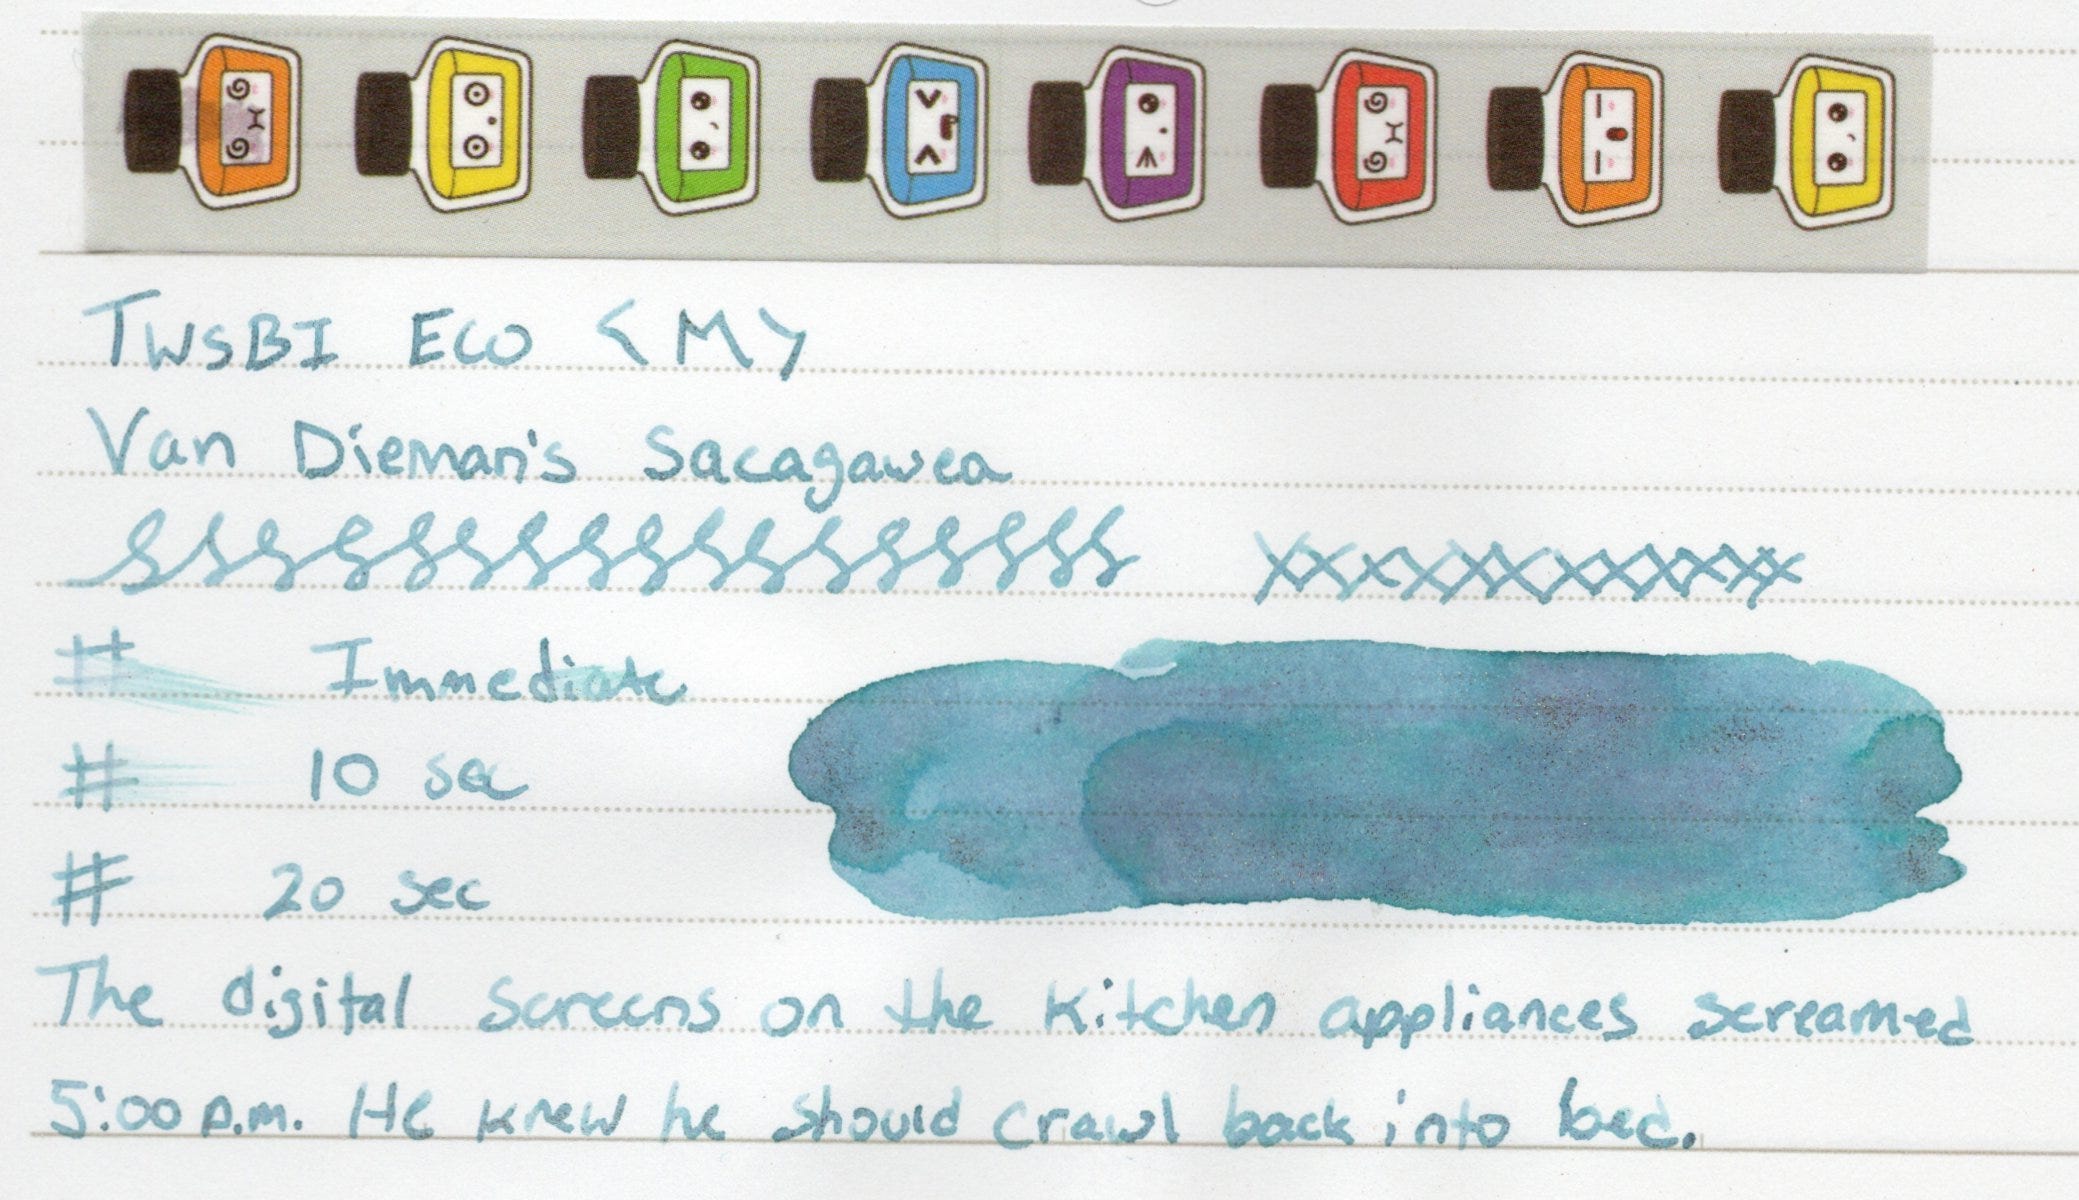 TWSBI ECO <M>
Van Dieman's Sacagawea
# Immediate
# 10 sec
# 20 sec
The digital screens on the kitchen appliances screamed
5:00 p.m. He knew he should crawl back into bed.